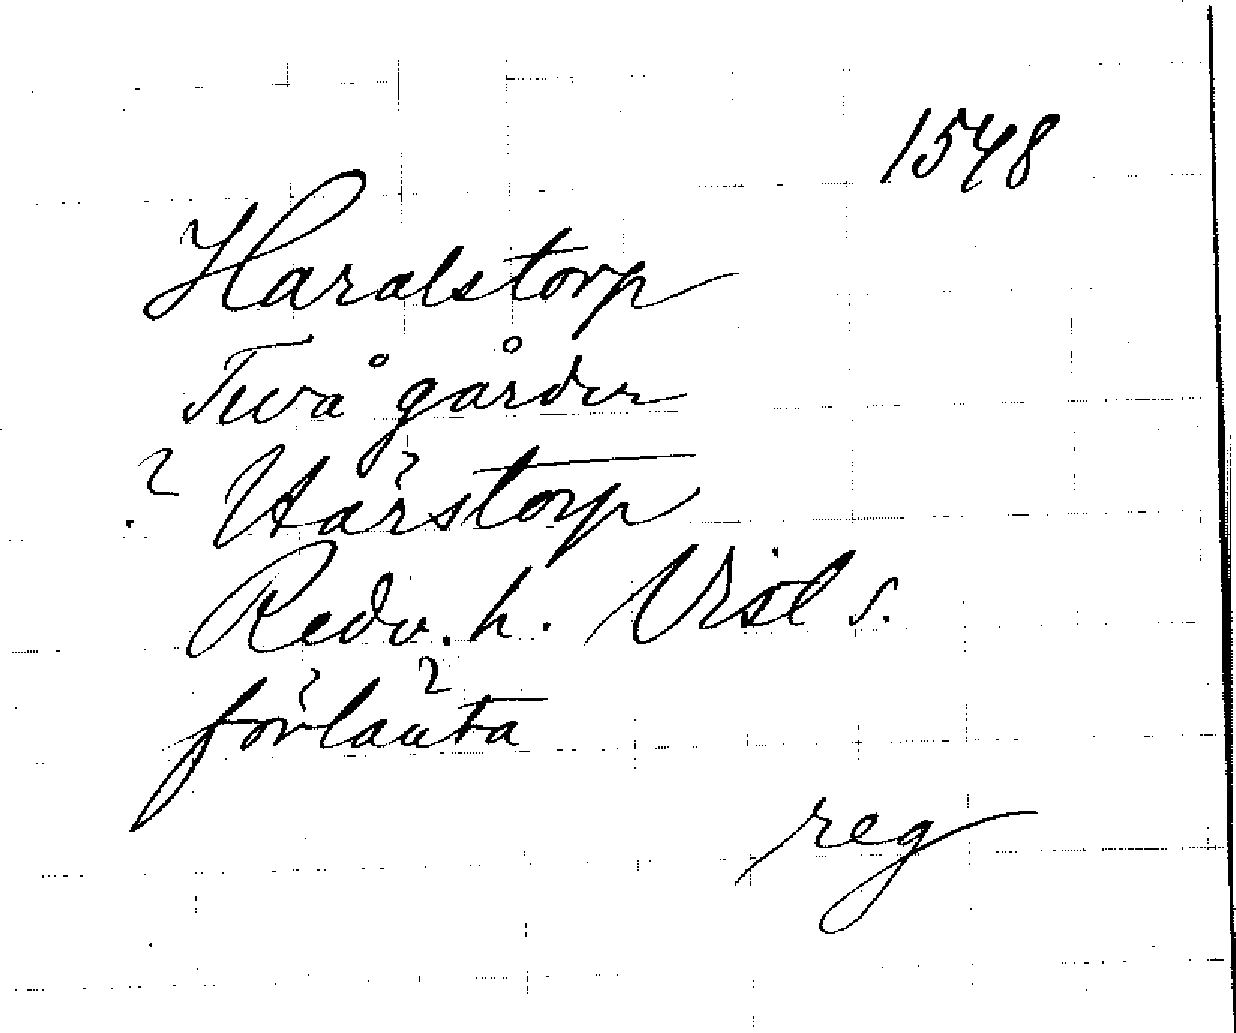 1548
Haralstorp
Tvvå gårder
? Harstorp
Redv. h. Visl s.
förlänta
reg